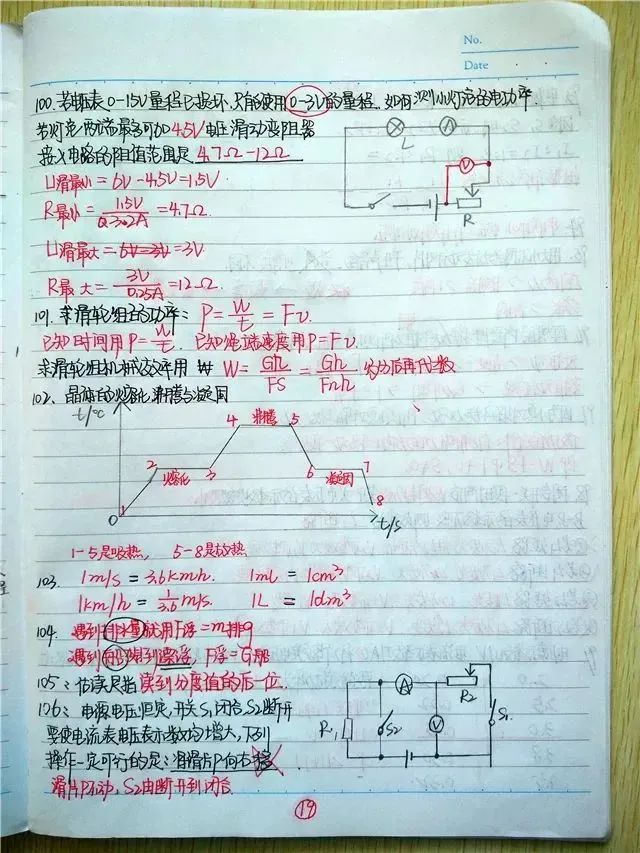 No.
Date
100. 若电压表0-15V量程已损坏,只能使用0-3V的量程,如何测小灯泡的电功率.
若灯泡两端最多可加4.5V电压,滑动变阻器
接入电路的阻值范围是 4.7Ω-12Ω
U滑最小 = 6V-4.5V=1.5V
R最小 = 1.5V/0.32A = 4.7Ω
U滑最大 = 6V-3V=3V
R最大 = 3V/0.25A = 12Ω
L
A
V
R
101. 求滑轮组的功率: P = W/t = Fv.
已知时间用P=W/t. 已知绳端速度用P=Fv
求滑轮组机械效率用 W = Gh/FS = Gh/Fnh 约分后再代数
102. 晶体的熔化 沸腾与凝固
t/℃
4 沸腾 5
2 熔化 3
6 凝固 7
1
8
0
t/s
1-5是吸热, 5-8是放热
103. 1m/s = 3.6km/h. 1mL = 1cm³
1km/h = 1/3.6 m/s. 1L = 1dm³
104. 遇到排水量就用F浮=m排g
遇到船想到漂浮, F浮=G船
105: 估读是指读到分度值的后一位.
106: 电源电压恒定,开关S₁闭合S₂断开
要使电流表电压表示数均增大,下列
操作一定可行的是:滑片P向右移
滑片P不动, S₂由断开到闭合
A
R₂
R₁
S₂
V
S₁
19